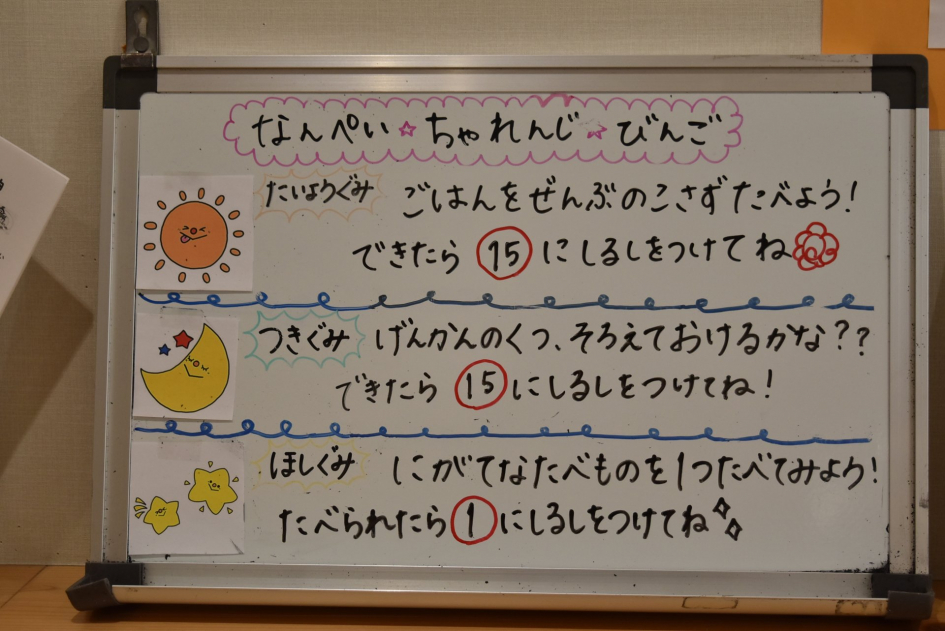 なんぺい☆ちゃれんじ☆びんご
たいようぐみ ごはんをぜんぶのこさずたべよう!
できたら 15 にしるしをつけてね
つきぐみ げんかんのくつ、そろえておけるかな??
できたら 15 にしるしをつけてね!
ほしぐみ にがてなたべものを1つたべてみよう!
たべられたら 1 にしるしをつけてね